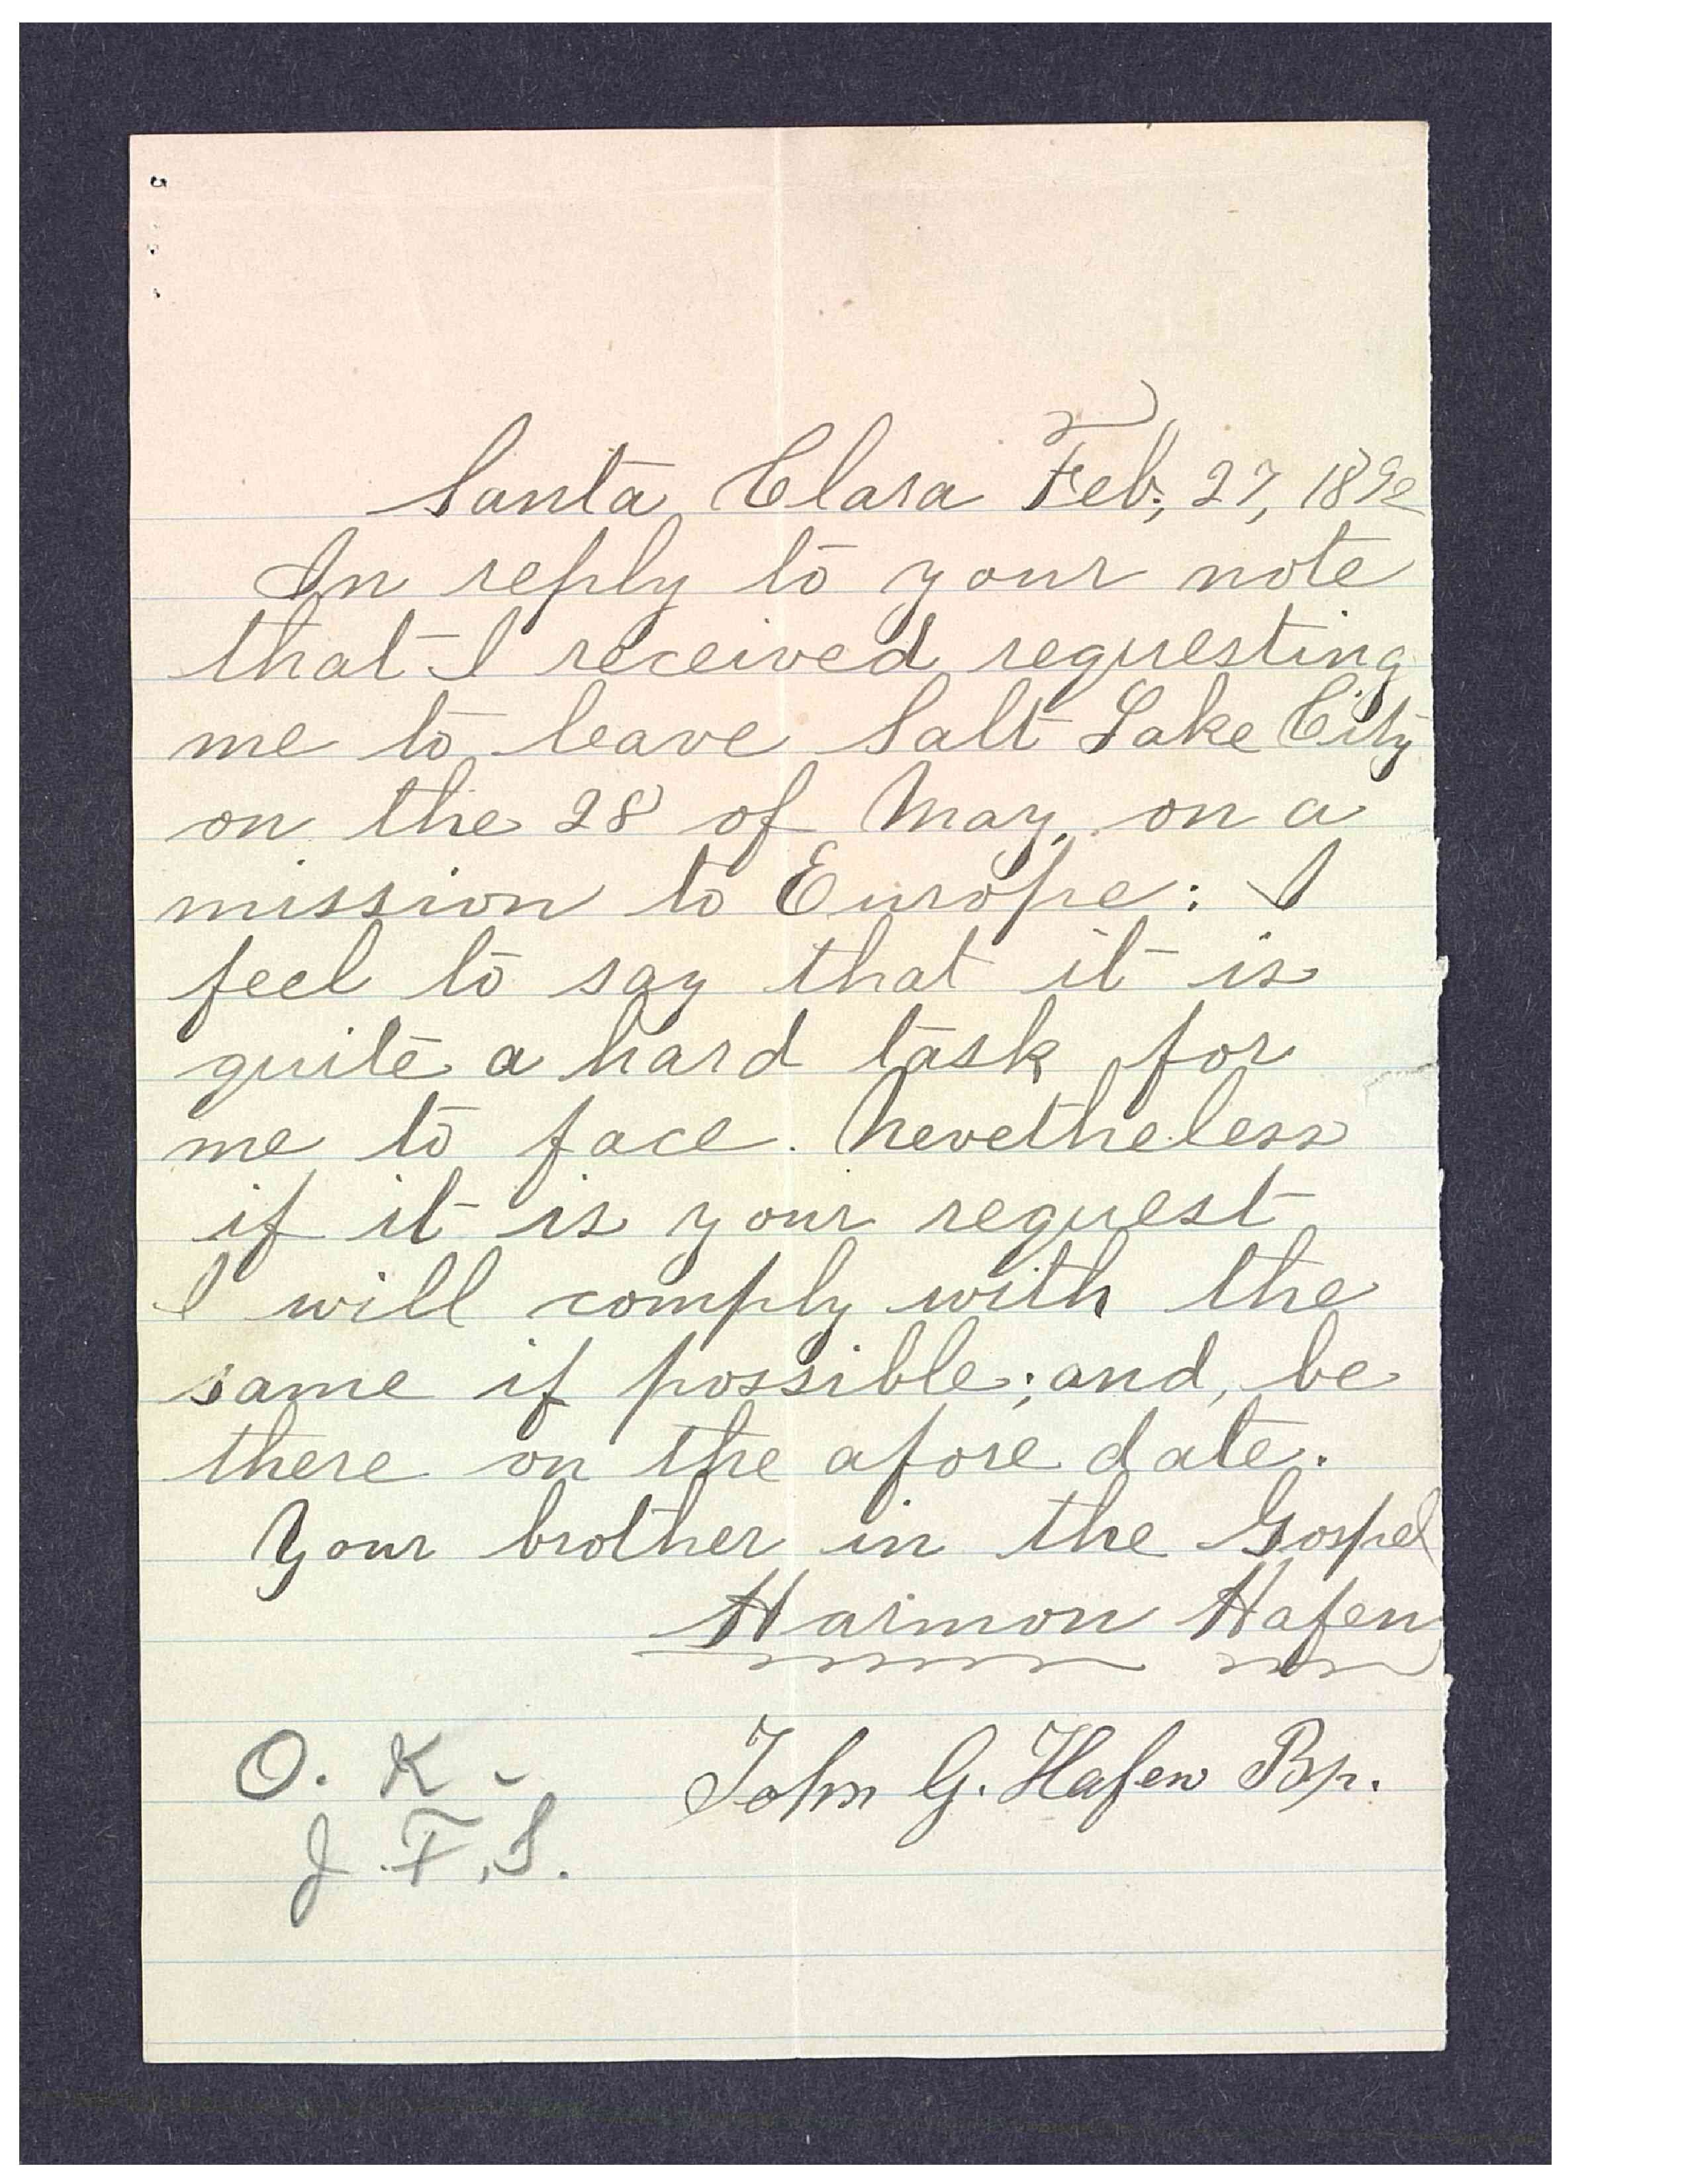 Santa Clara Feb; 27, 1892
In reply to your note
that I received requesting
me to leave Salt Lake City
on the 28 of May, on a
mission to Europe: I
feel to say that it is
quite a hard task for
me to face. Nevetheless
if it is your request
I will comply with the
same if possible; and, be
there on the afore date.
Your brother in the Gospel
Harmon Hafen
John G. Hafen Bp.
O. K -
J. F. S.